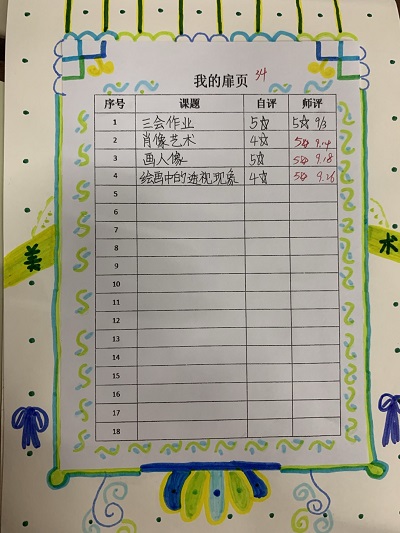 我的扉页
序号 课题 自评 师评
1 三会作业 5☆ 5☆ 9/3
2 肖像艺术 4☆ 5☆ 9.14
3 画人像 5☆ 5☆ 9.18
4 绘画中的透视现象 4☆ 5☆ 9.26
5
6
7
8
9
10
11
12
13
14
15
16
17
18
美 术